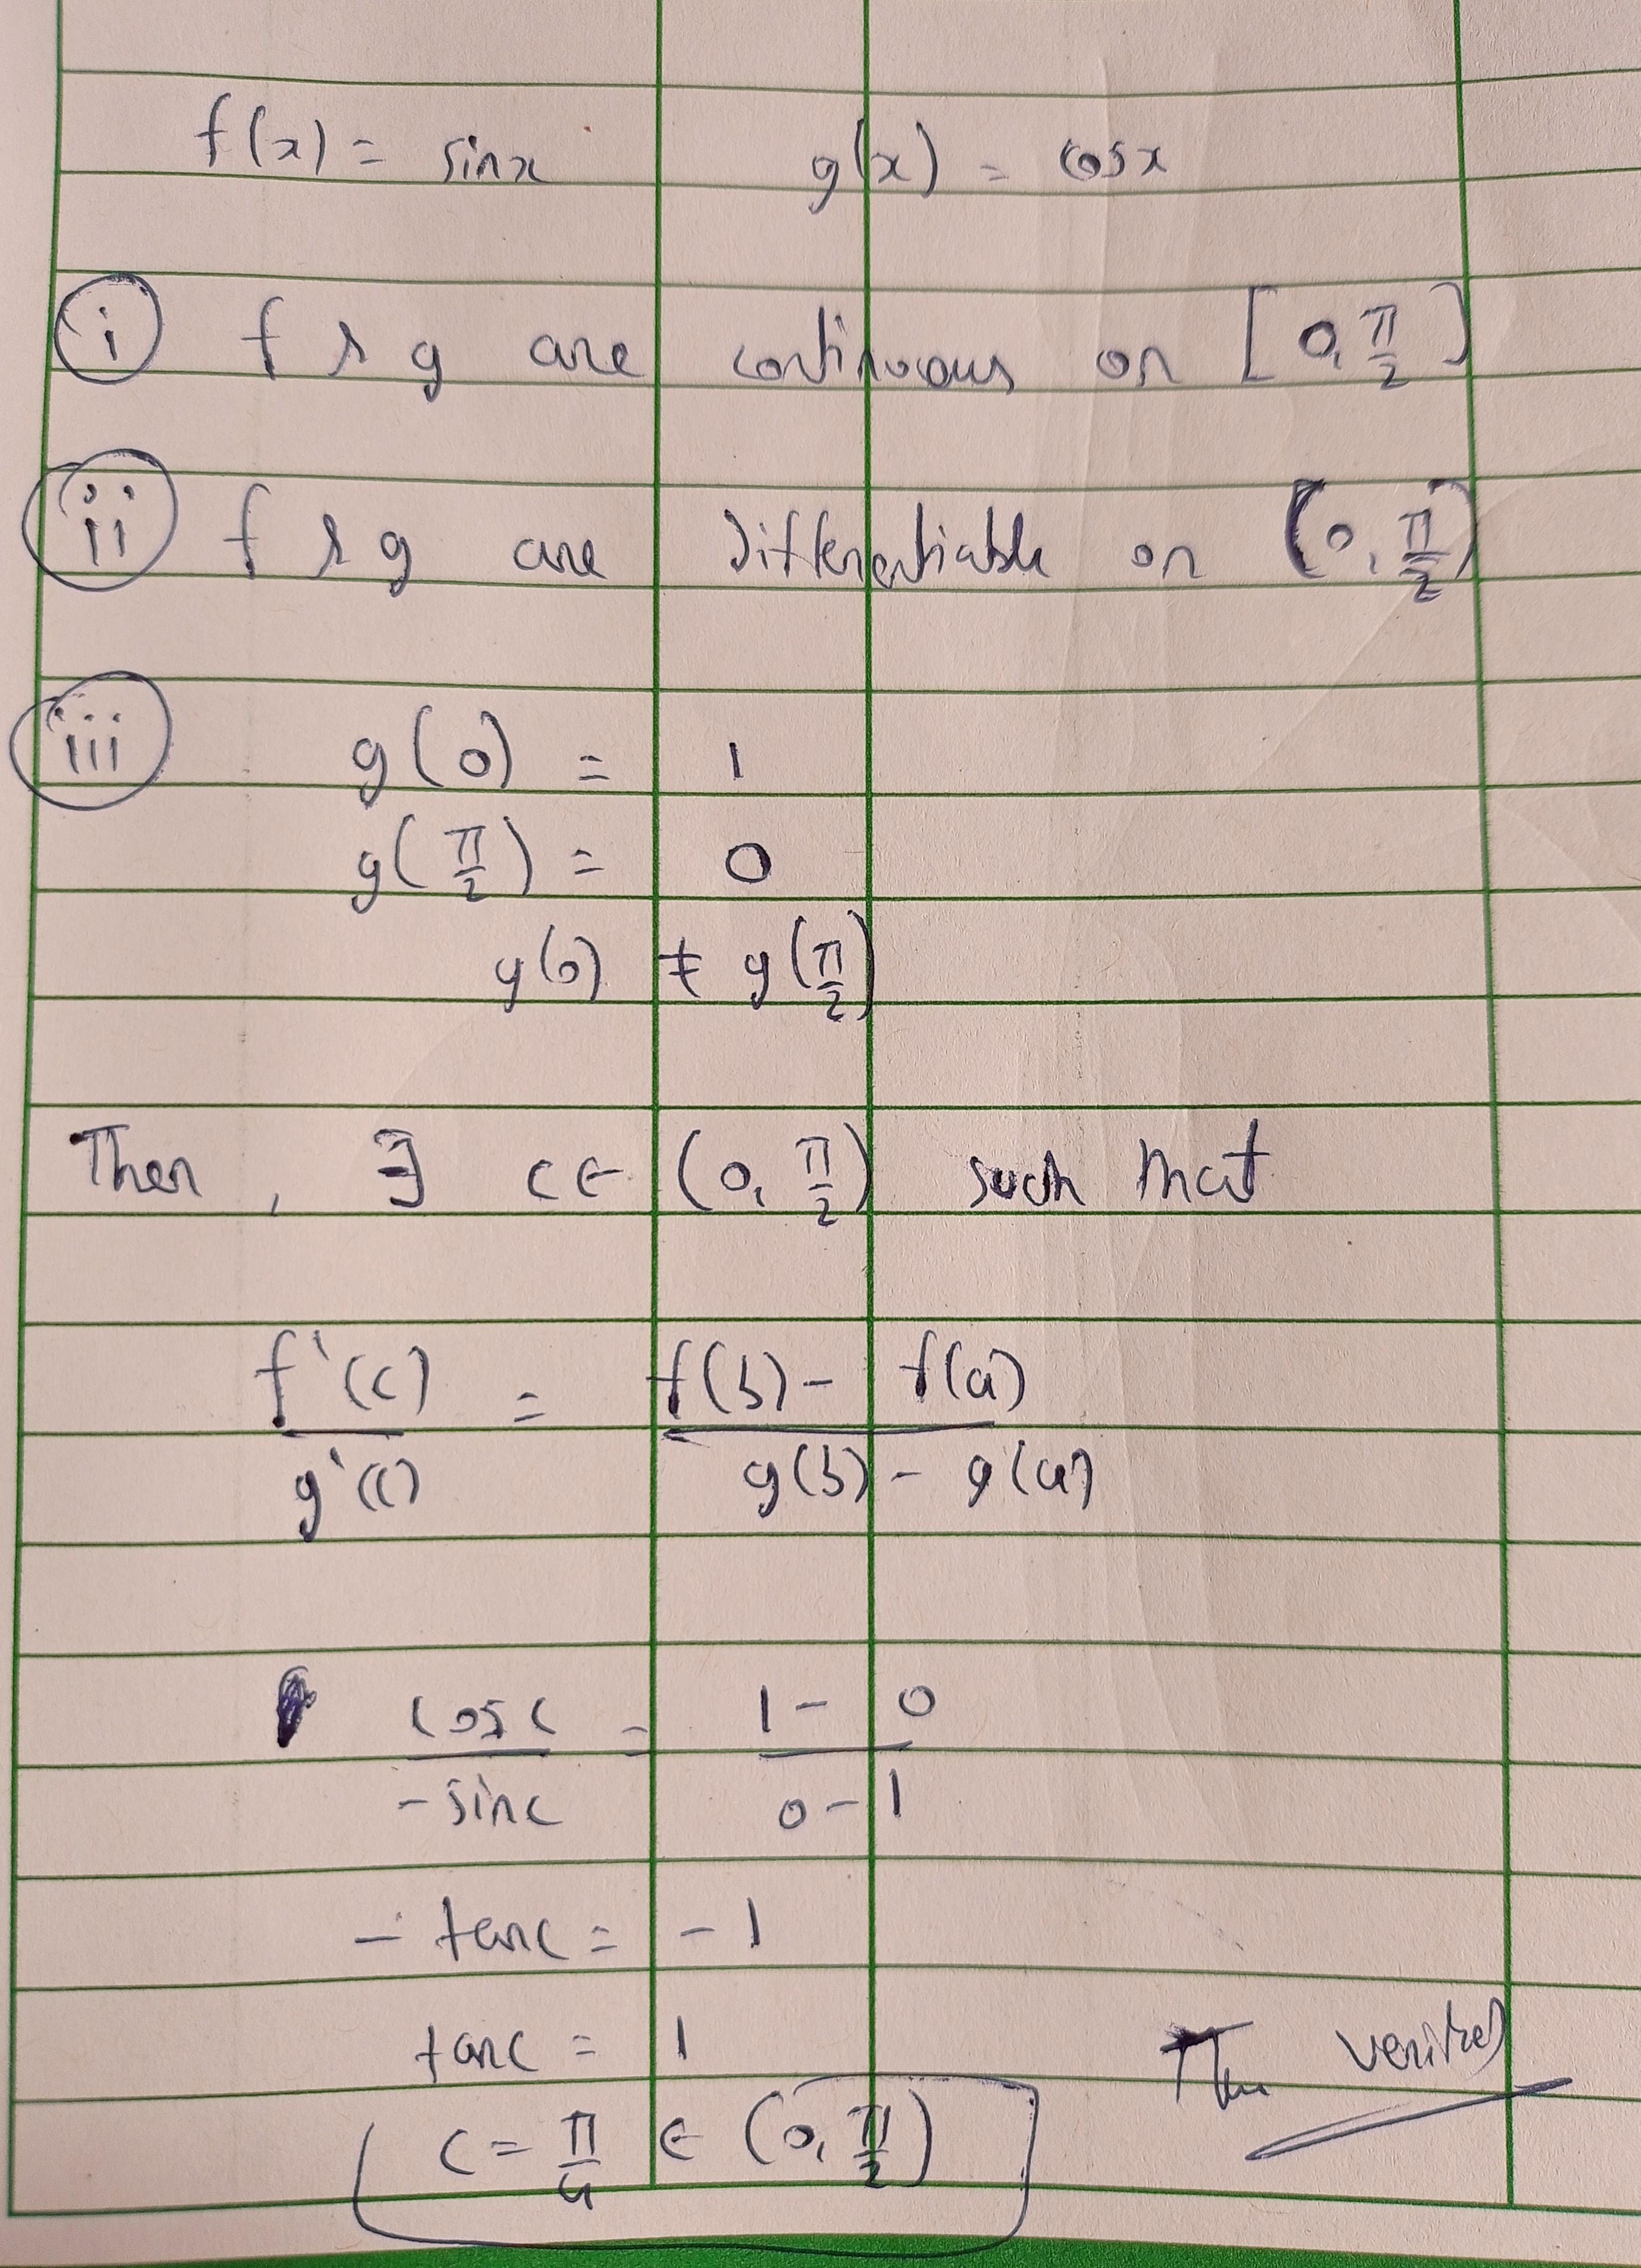 f(x) = sinx g(x) = cosx
i f & g are continuous on [0, π/2]
ii f & g are differentiable on (0, π/2)
iii g(0) = 1
g(π/2) = 0
g(0) ≠ g(π/2)
Then, ∃ c ∈ (0, π/2) such that
f'(c)/g'(c) = f(b) - f(a)/g(b) - g(a)
cosc/-sinc = 1 - 0/0 - 1
- tanc = -1
tanc = 1
c = π/4 ∈ (0, π/2) verified